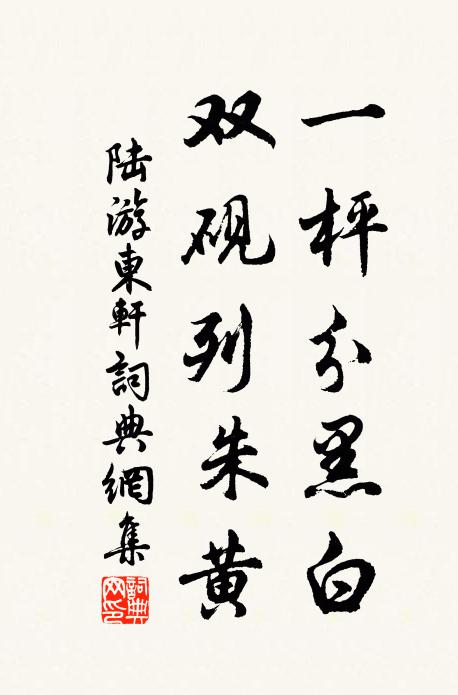 一枰分黑白
双砚列朱黄
陆游東軒詞典網集
詞典网印